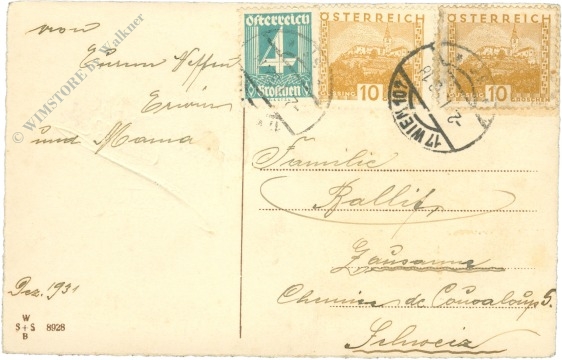 von
Eurem Neffen
Erwin
und Mama
Dez. 1931
W
S+S 8928
B
© WIMSTORE by Walkner
Österreich
4
Groschen
ÖSTERREICH
10
GROSCHEN
ÖSTERREICH
10
GROSCHEN
17 WIEN 101
Familie
Ballif,
Lausanne
Chemin de Couvaloup 5.
Schweiz